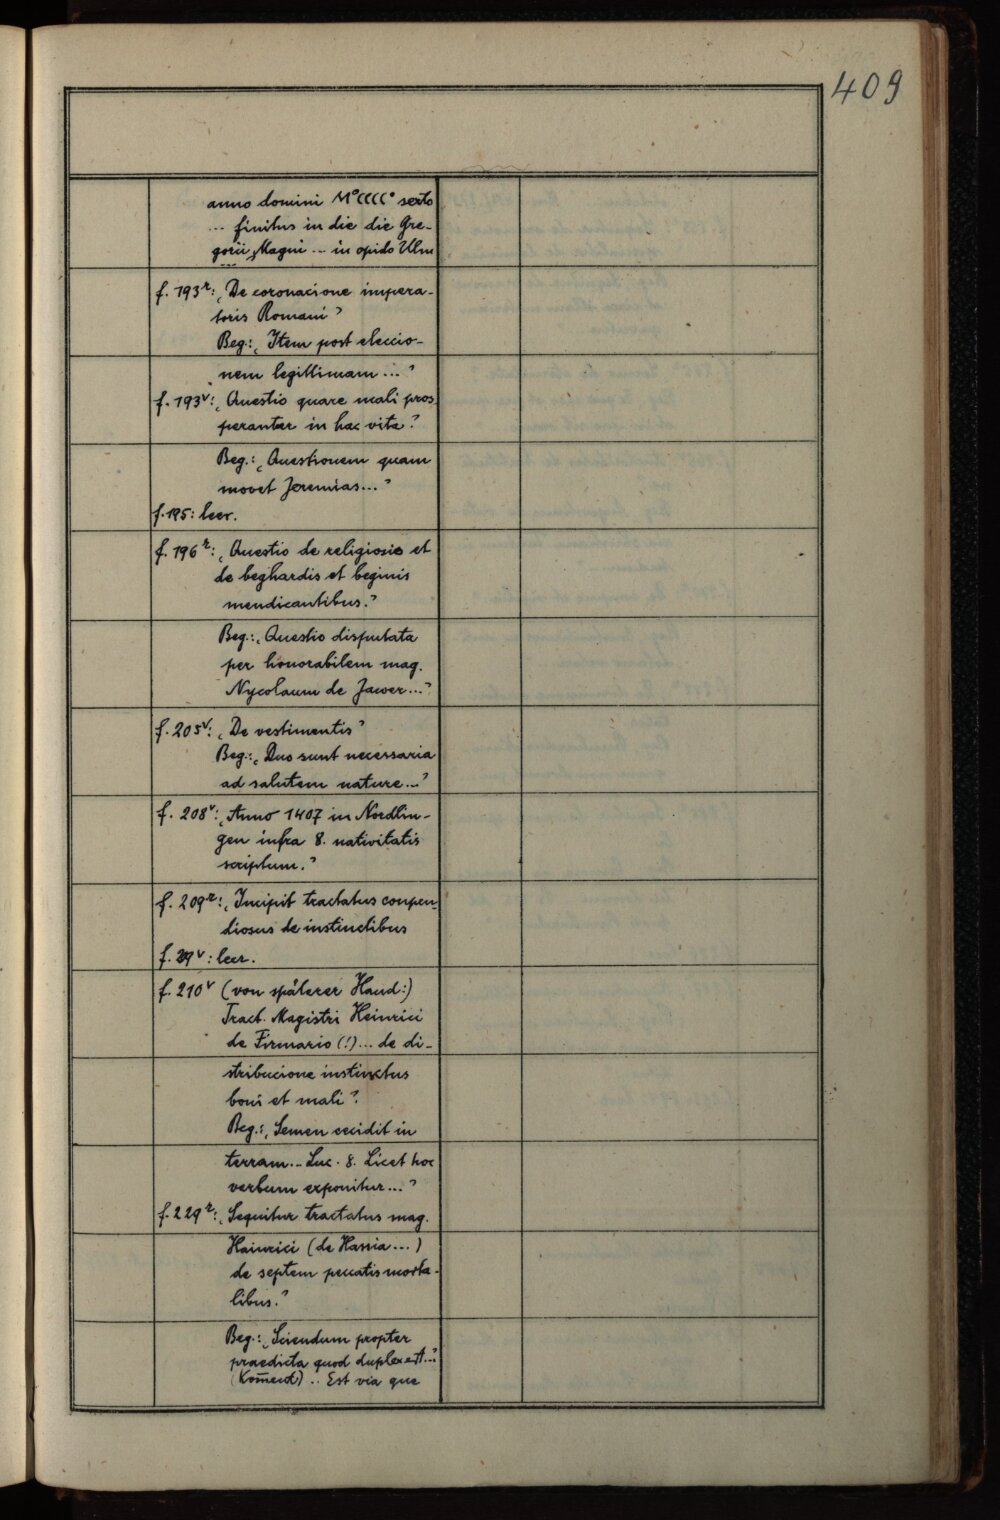 409
anno domini M°CCCC° sexto
... finitus in die die Gre-
gorii Magni ... in opido Ulm
f. 193r: „De coronacione impera-
toris Romani“
Beg.: „Item post eleccio-
nem legittimam ...“
f. 193v: „Questio quare mali pros-
perantur in hac vita“.
Beg.: „Questionem quam
movet Jeremias...“
f. 195: leer.
f. 196r: „Questio de religiosis et
de beghardis et beginis
mendicantibus.“
Beg.: „Questio disputata
per honorabilem mag.
Nycolaum de Jawer...“
f. 205v: „De vestimentis“
Beg.: „Duo sunt necessaria
ad salutem nature...“
f. 208v: „Anno 1407 in Nordlin-
gen infra 8. nativitatis
scriptum.“
f. 209r: „Incipit tractatus conpen-
diosus de instinctibus
f. v: leer.
f. 210v (von späterer Hand:)
Tract. Magistri Heinrici
de Firmario (!)... de di-
stribucione instinctus
boni et mali“.
Beg.: „Semen cecidit in
terram... Luc. 8. Licet hoc
verbum exponitur...“
f. 229r: „Sequitur tractatus mag.
Hainrici (de Hassia...)
de septem peccatis morta-
libus.“
Beg.: „Sciendum propter
praedicta quod duplex est...“
(Kom̄ent) .. Est via que